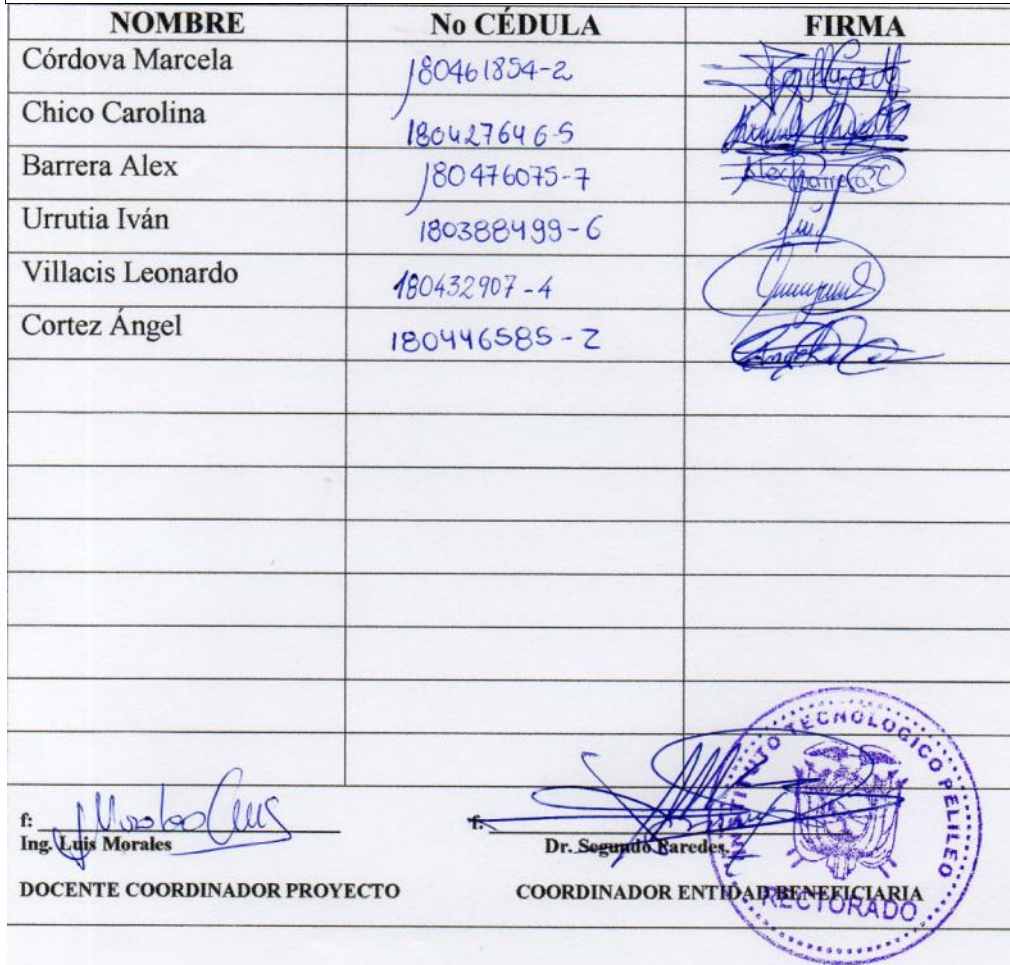 NOMBRE No CÉDULA FIRMA
Córdova Marcela 180461854-2
Chico Carolina 180427646-5
Barrera Alex 180476075-7 Alex Barrera C
Urrutia Iván 180388499-6
Villacis Leonardo 180432907-4
Cortez Ángel 180446585-2
f: Morales Luis f:
Ing. Luis Morales Dr. Segundo Paredes.
DOCENTE COORDINADOR PROYECTO COORDINADOR ENTIDAD BENEFICIARIA
INSTITUTO TECNOLOGICO PELILEO
RECTORADO